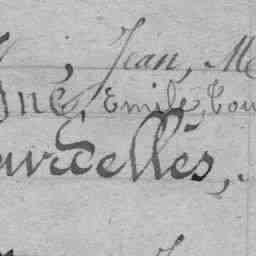 , Jean, M
gne, Emile, Cou
urcelles,